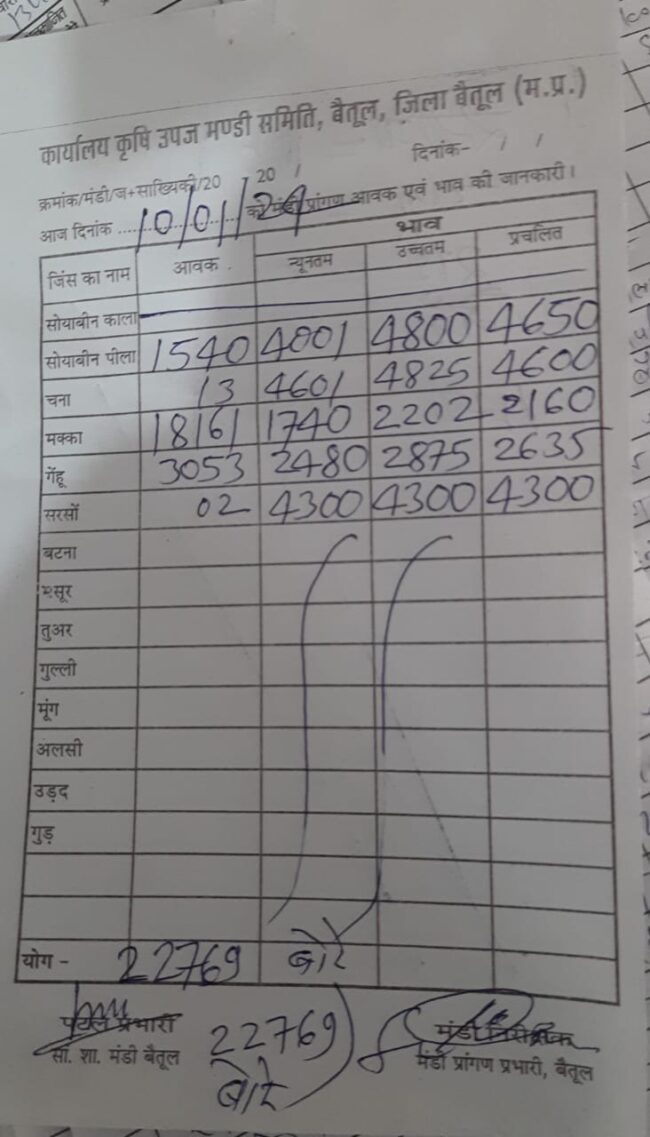 कार्यालय कृषि उपज मण्डी समिति, बैतूल, जिला बैतूल (म.प्र.)
क्रमांक/मंडी/ज+सांख्यिकी/20 20 / दिनांक- / /
आज दिनांक 10/01/24 को मंडी प्रांगण आवक एवं भाव की जानकारी।
जिंस का नाम आवक भाव
न्यूनतम उच्चतम प्रचलित
सोयाबीन काला
सोयाबीन पीला 1540 4001 4800 4650
चना 13 4601 4825 4600
मक्का 18161 1740 2202 2160
गेंहू 3053 2480 2875 2635
सरसों 02 4300 4300 4300
बटना
मसूर
तुअर
गुल्ली
मूंग
अलसी
उड़द
गुड़
योग - 22769 बोरे
प्रभारी मंडी निरीक्षक
सां. शा. मंडी बैतूल 22769 मंडी प्रांगण प्रभारी, बैतूल
बोरे